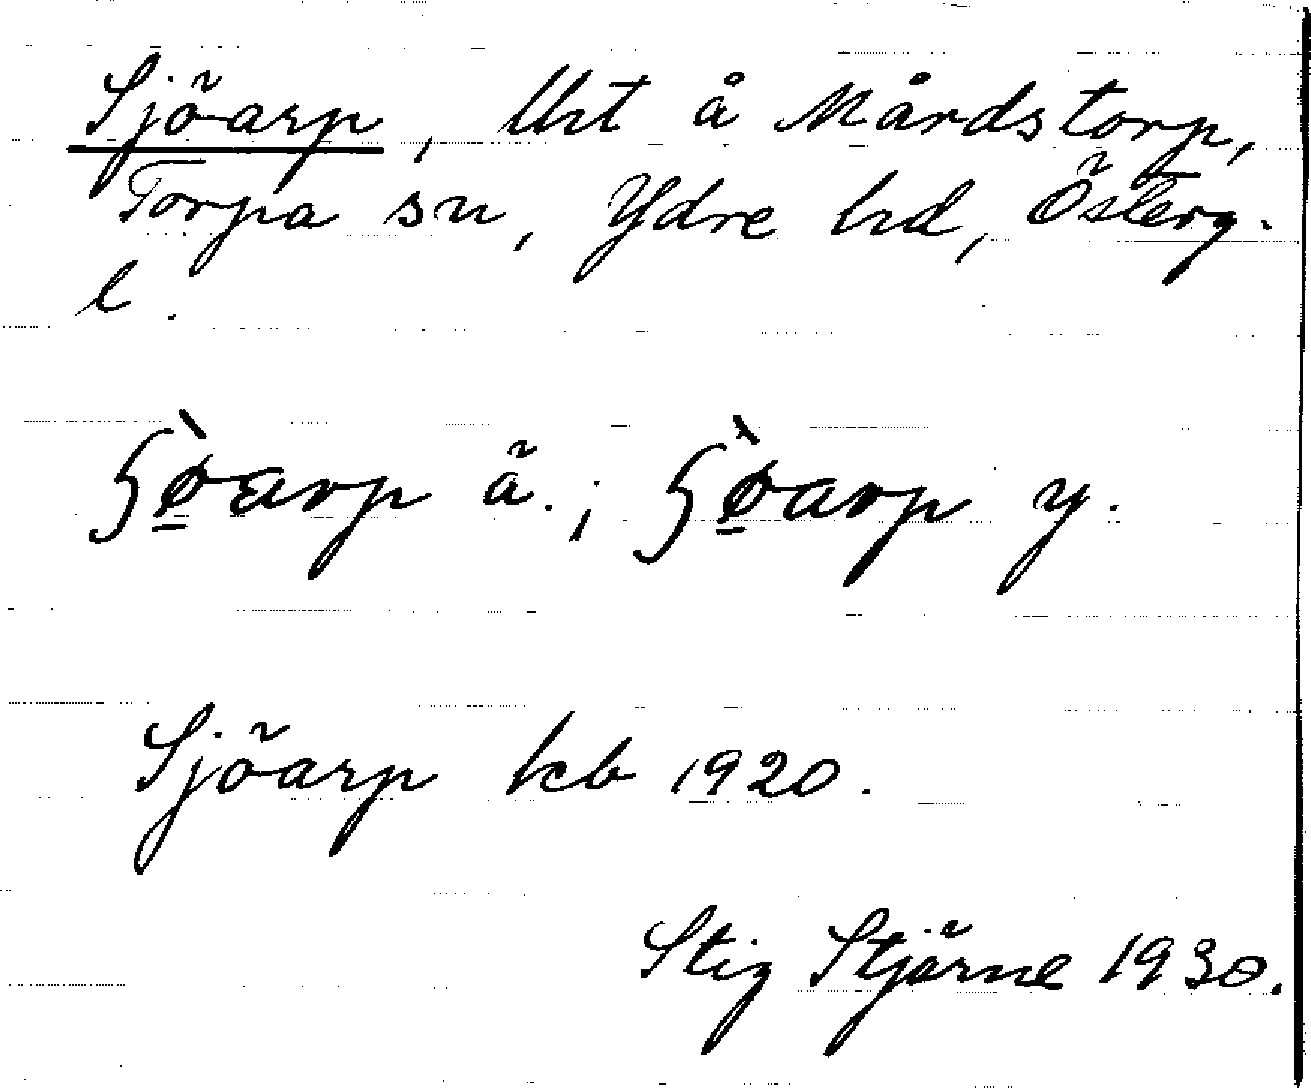 Sjöarp, lht å Mårdstorp,
Torpa sn, Ydre hd, Österg.
l.
ʃø̱̀arp ä.; ʃø̱̀arp y.
Sjöarp kb 1920.
Stig Stjärne 1930.